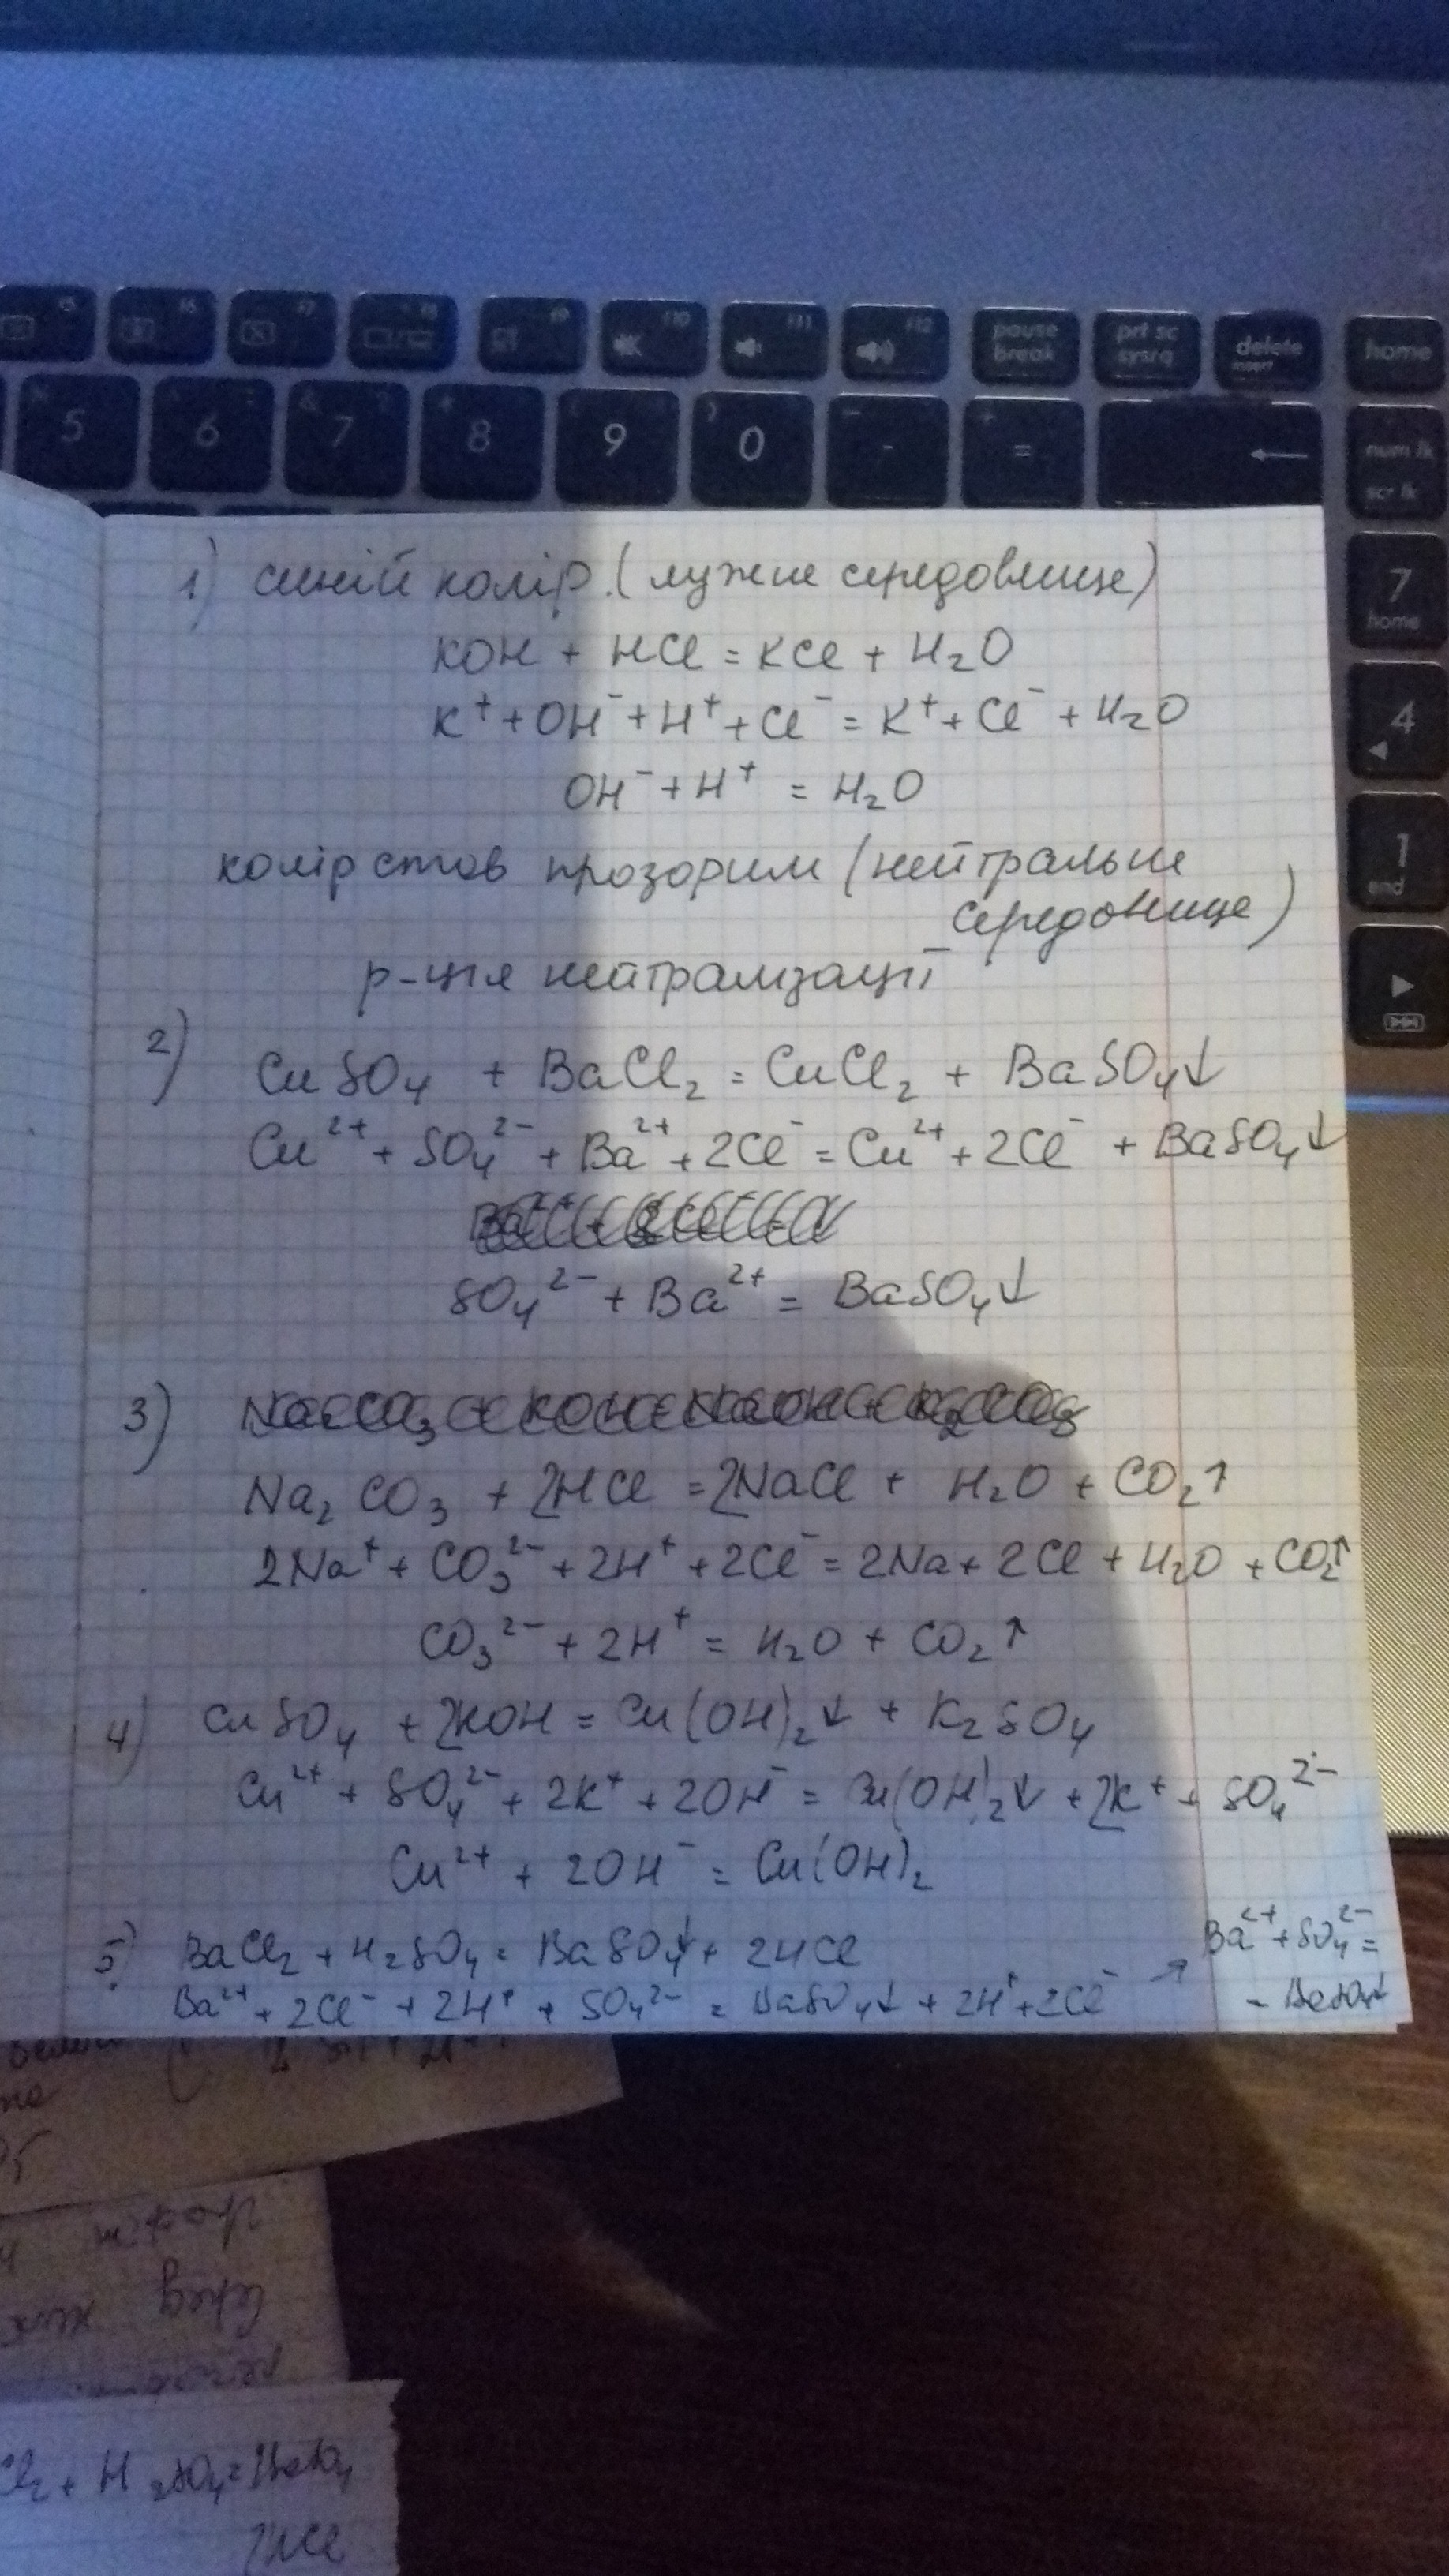 F5 F6 F7 F8 F9 F10 F11 F12 pause break prt sc sysrq delete insert home
5 6 7 8 9 0 - = ← num lk scr lk
7 home
4
1 end
1) синій колір. (лужне середовище)
KOH + HCl = KCl + H₂O
K⁺ + OH⁻ + H⁺ + Cl⁻ = K⁺ + Cl⁻ + H₂O
OH⁻ + H⁺ = H₂O
колір став прозорим (нейтральне
середовище)
р-ція нейтралізації
2) CuSO₄ + BaCl₂ = CuCl₂ + BaSO₄↓
Cu²⁺ + SO₄²⁻ + Ba²⁺ + 2Cl⁻ = Cu²⁺ + 2Cl⁻ + BaSO₄↓
SO₄²⁻ + Ba²⁺ = BaSO₄↓
3)
Na₂CO₃ + 2HCl = 2NaCl + H₂O + CO₂↑
2Na⁺ + CO₃²⁻ + 2H⁺ + 2Cl⁻ = 2Na + 2Cl + H₂O + CO₂↑
CO₃²⁻ + 2H⁺ = H₂O + CO₂↑
4) CuSO₄ + 2KOH = Cu(OH)₂↓ + K₂SO₄
Cu²⁺ + SO₄²⁻ + 2K⁺ + 2OH⁻ = Cu(OH)₂↓ + 2K⁺ + SO₄²⁻
Cu²⁺ + 2OH⁻ = Cu(OH)₂
5) BaCl₂ + H₂SO₄ = BaSO₄↓ + 2HCl
Ba²⁺ + 2Cl⁻ + 2H⁺ + SO₄²⁻ = BaSO₄↓ + 2H⁺ + 2Cl⁻ →
Ba²⁺ + SO₄²⁻ =
= BaSO₄↓
Cl₂ + H₂SO₄ = BaSO₄
2HCl